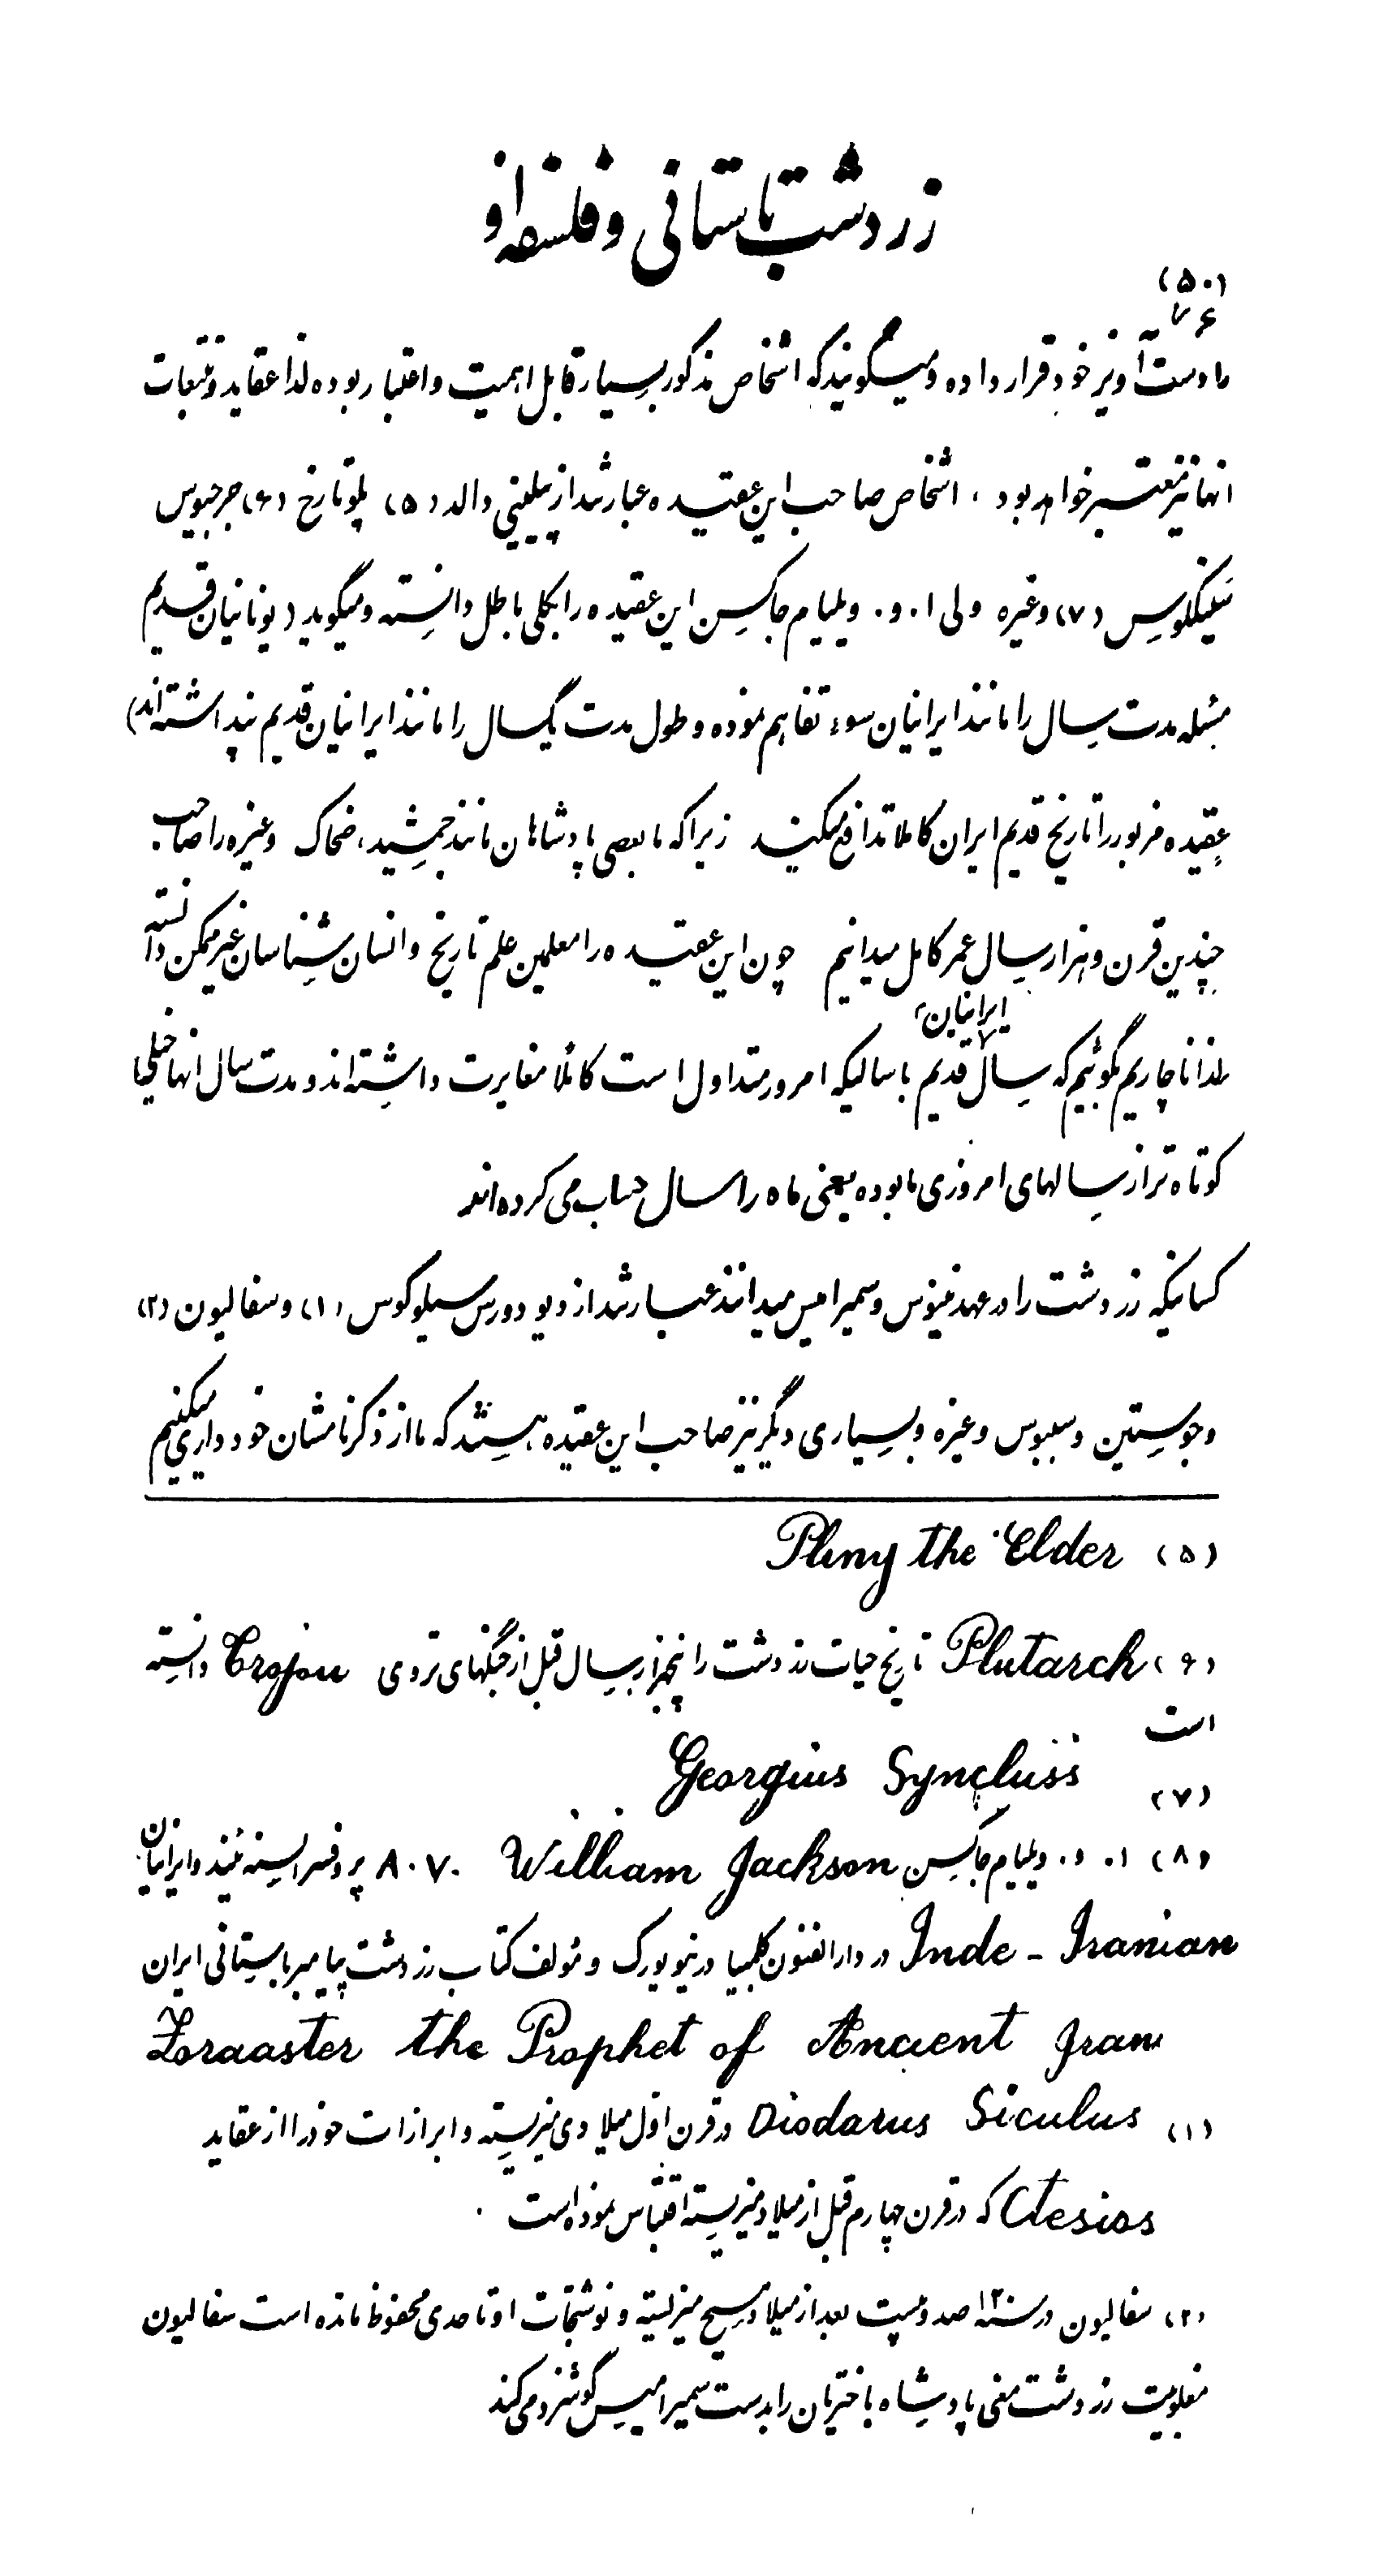 زردشت باستانی و فلسفه او
(۵۰)
۷۶
ما دست آویز خود قرار داده و میگویند که اشخاص مذکور بسیار قابل اهمیت و اعتبار بوده لذا عقاید و تتبعات
انها نیز معتبر خواهد بود ، اشخاص صاحب این عقیده عبارتند از پیلینی دالد (۵) پلوتارخ (۶) جرجیوس
سینکلوس (۷) وغیره ولی ا . و . ویلیام جاکسن این عقیده را بکلی باطل دانسته و میگوید (یونانیان قدیم
مسئله مدت سال را مانند ایرانیان سوء تفاهم نموده و طول مدت یکسال را مانند ایرانیان قدیم نپداشته اند)
عقیده مزبور را تاریخ قدیم ایران کاملا تدافع میکند زیرا که ما بعضی پادشاهان مانند جمشید، ضحاک وغیره را صاحب
چندین قرن و هزار سال عمر کامل میدانیم چون این عقیده را معلمین علم تاریخ و انسان شناسان غیر ممکن دانسته
لذا ناچاریم بگوئیم که سال ایرانیان قدیم با سالیکه امروز متداول است کاملا مغایرت داشته اند و مدت سال انها خیلی
کوتاه تر از سالهای امروزی ما بوده یعنی ماه را سال حساب می کرده اند
کسانیکه زردشت را در عهد نینوس و سمیرامیس میدانند عبارتند از دیودورس سیلوکوس (۱) و سفالیون (۲)
و جوستین و سببوس وغیره و بسیاری دیگر نیز صاحب این عقیده هستند که ما از ذکر نامشان خود داری میکنیم
(۵) Pliny the Elder
(۶) Plutarch تاریخ حیات زردشت را پنجهزار سال قبل از جنگهای تروی Trojan دانسته
است
(۷) Georgius Syncluss
(۸) ا . و . ویلیام جاکسن A. V. William Jackson پروفسر السنه هند و ایرانیان
Inde - Iranian در دارالفنون کلمبیا در نیویورک و مؤلف کتاب زردشت پیامبر باستانی ایران
Zoraaster the Prophet of Ancient Iran
(۱) Diodarus Siculus در قرن اول میلادی میزیسته و ابرازات خود را از عقاید
Ctesias که در قرن چهارم قبل از میلاد میزیسته اقتباس نموده است .
(۲) سفالیون در سنه ۱۲۰ صد و بیست بعد از میلاد مسیح میزیسته و نوشتجات او تا حدی محفوظ مانده است سفالیون
مغلوبیت زردشت مغی پادشاه باختریان را بدست سمیرامیس گوشزد می کند